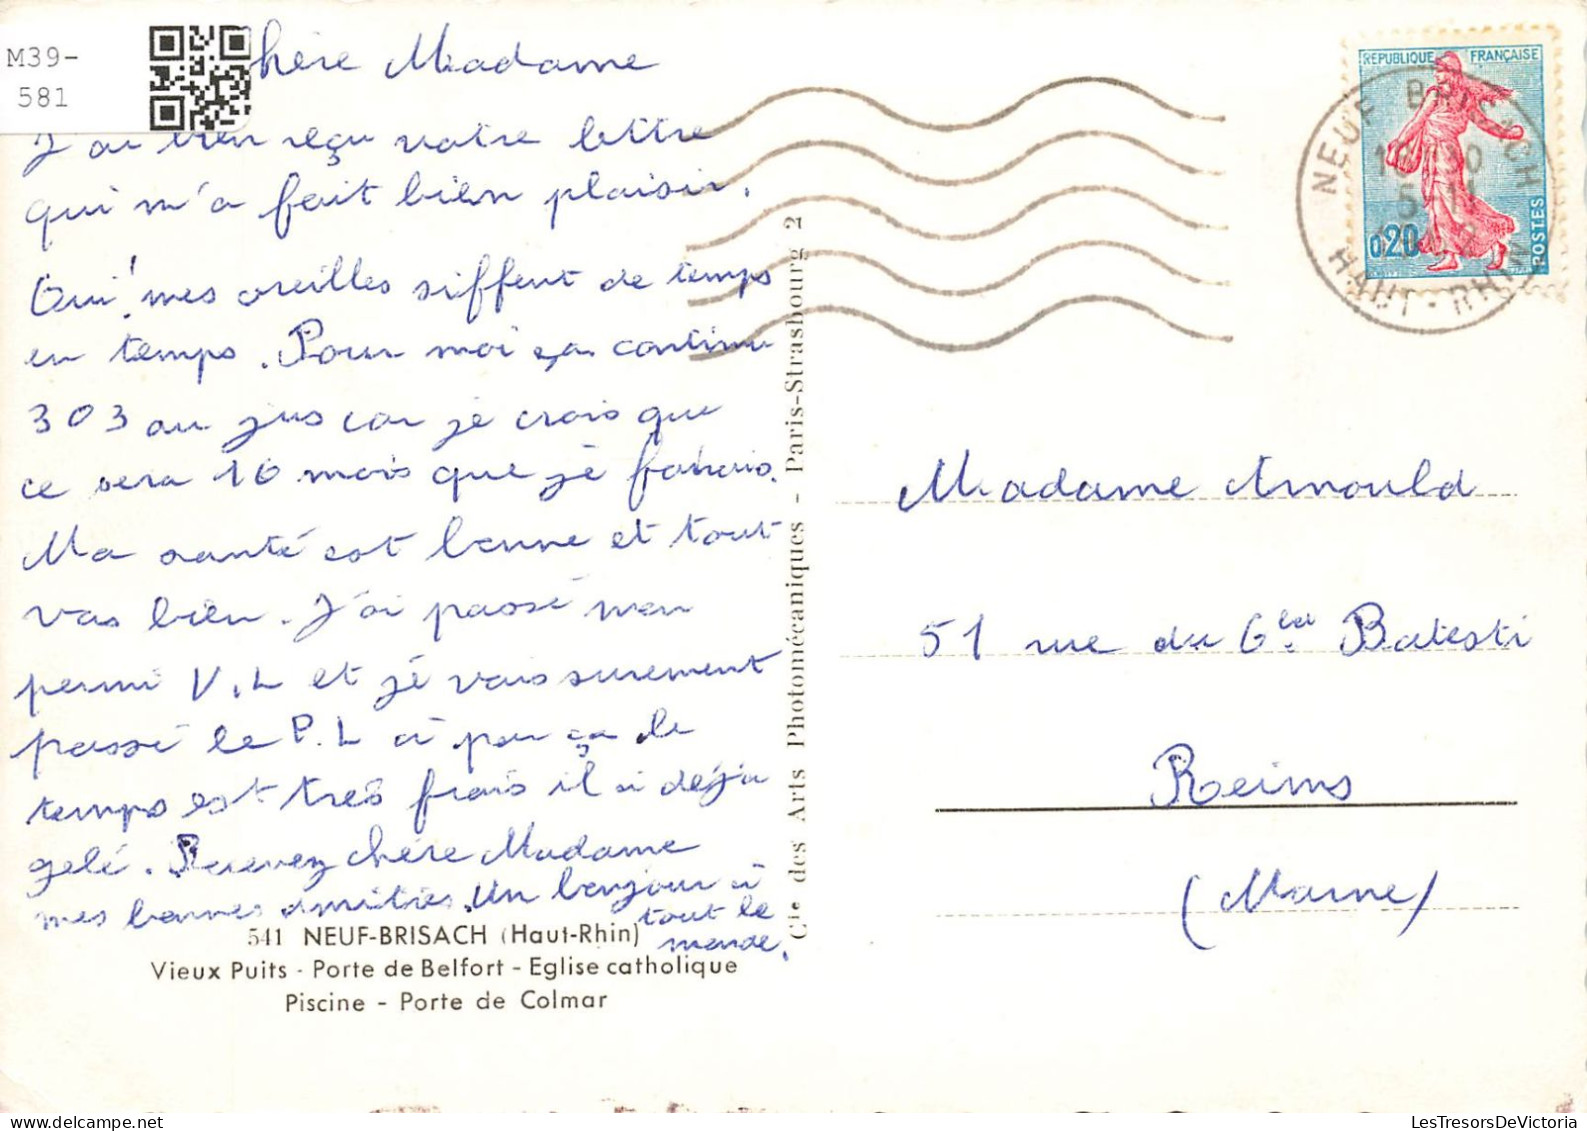 M39-
581
Chère Madame
J'ai bien reçu votre lettre
qui m'a fait bien plaisir.
Oui! mes oreilles siffent de temps
en temps. Pour moi ça continu
303 au jus car je crois que
ce sera 16 mois que je
Ma santé est bonne et tout
vas bien. J'ai passé mon
permi V.L et jé vais surement
passé le P.L à par ça le
temps est très frais il a déjà
gelé. Recevez chère Madame
mes bonnes amitiés. Un bonjour à
tout le
monde.
541 NEUF-BRISACH (Haut-Rhin)
Vieux Puits - Porte de Belfort - Eglise catholique
Piscine - Porte de Colmar
Cie des Arts Photomécaniques - Paris-Strasbourg 21
REPUBLIQUE FRANÇAISE
0,20
POSTES
NEUF BRISACH
HAUT-RHIN
Madame Arnould
51 rue du Gral Batesti
Reims
(Marne)
LesTresorsDeVictoria